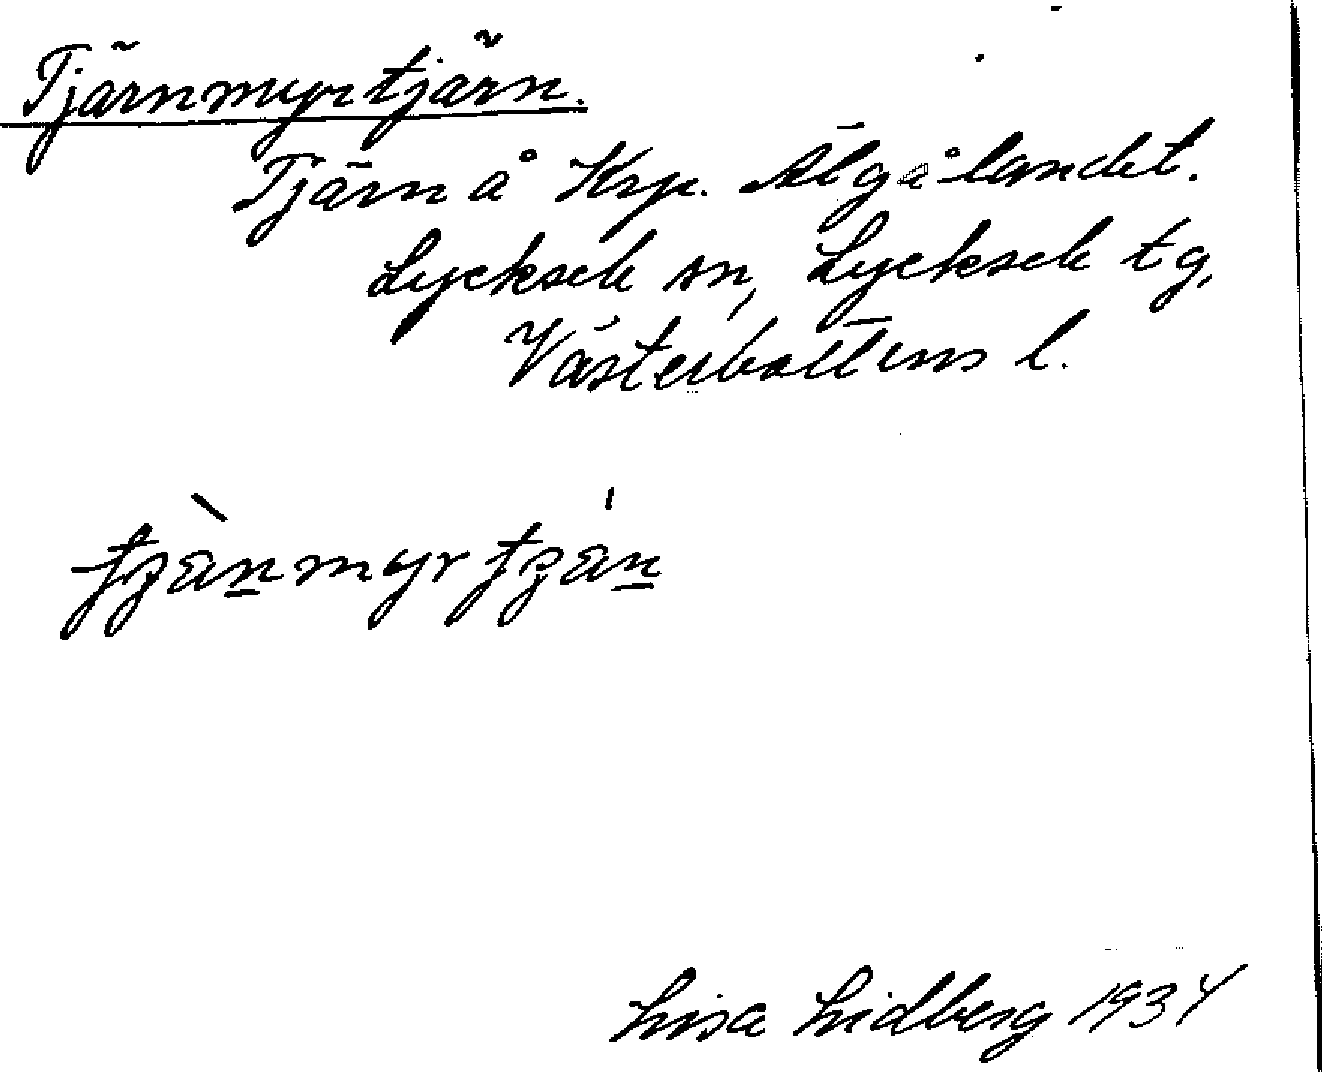 Tjärnmyrtjärn.
Tjärn å Krp. Älgålandet.
Lycksele sn, Lycksele tg,
Västerbottens l.
Lisa Lidberg 1934